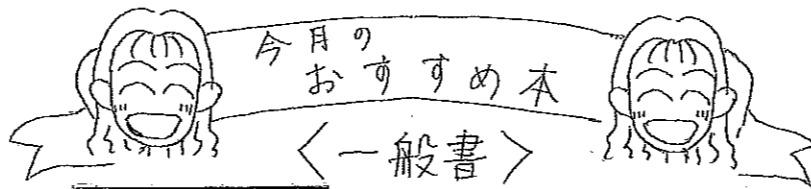 今月の
おすすめ本
〈一般書〉